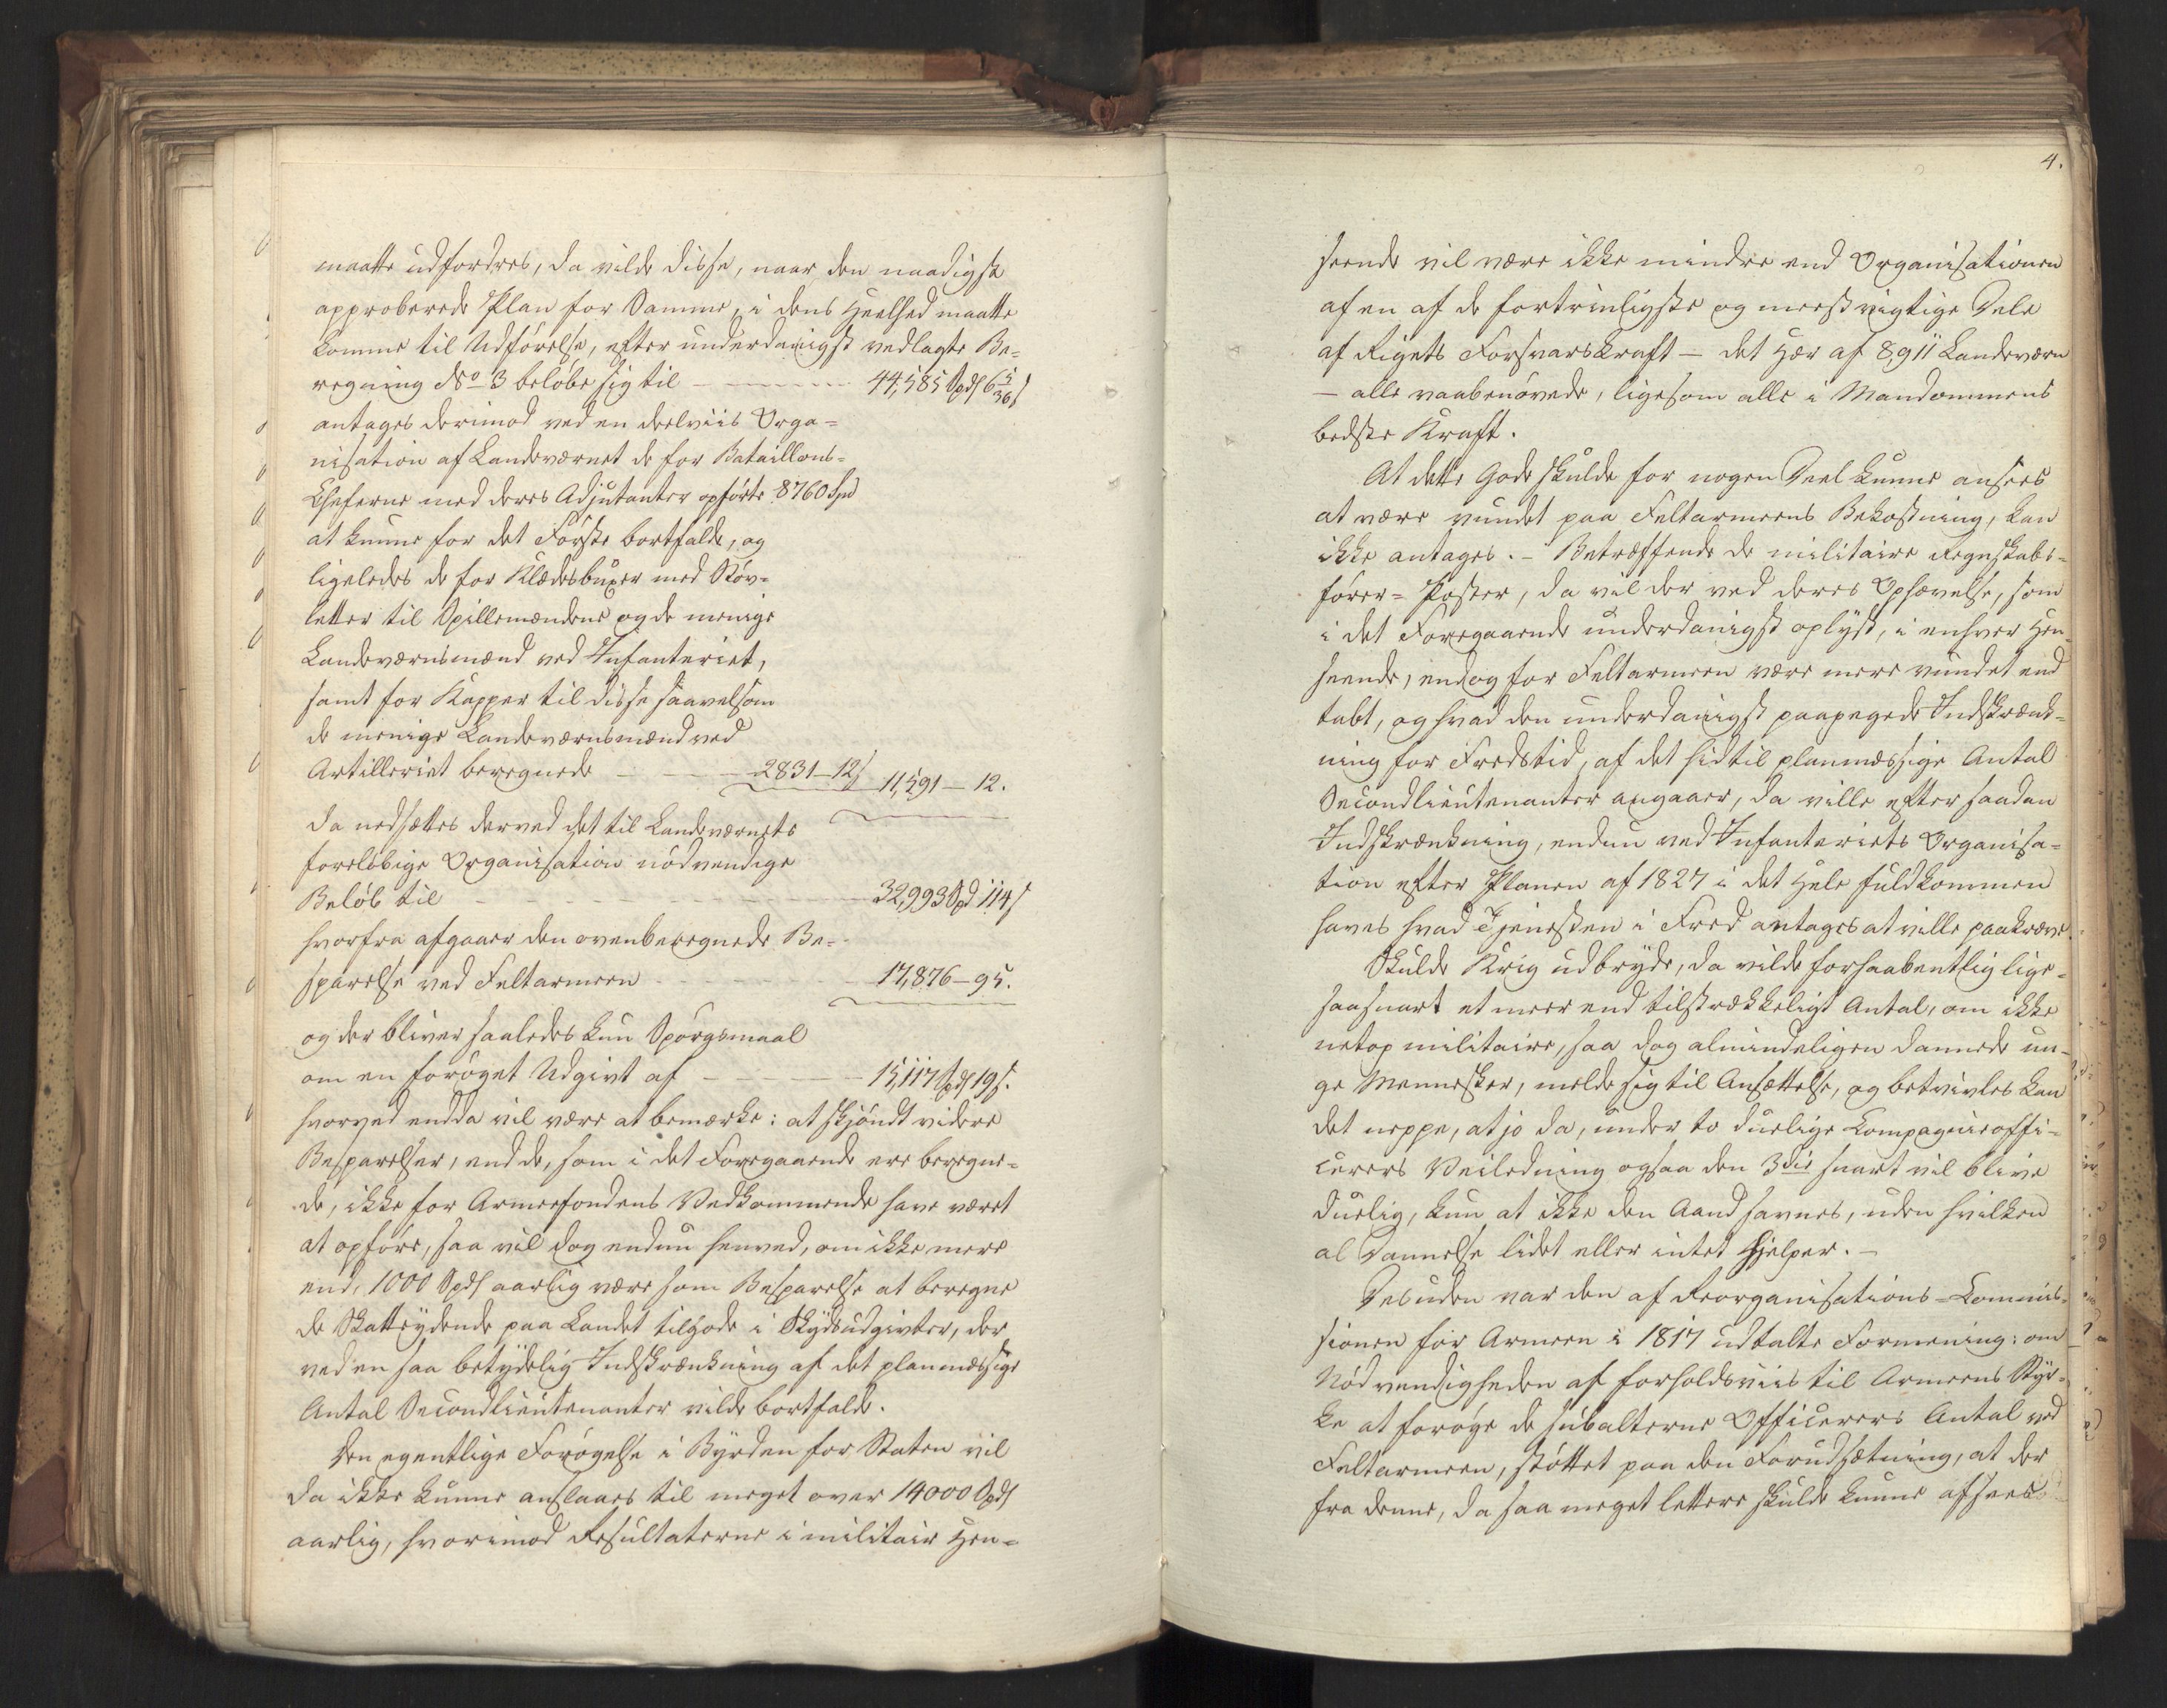 maatte udfordres, da vilde disse, naar den naadigst
approberede Plan for Samme, i dens Heelhed maatte
komme til Udførelse, efter underdanigst vedlagte Be=
regning No 3 beløbe sig til — 44,585 Spd 6 5/36 s
antages derimod ved en deelviis Orga=
nisation af Landeværnet de for Bataillons=
Cheferne med deres Adjutanter opførte 8760 Spd
at kunne for det Første bortfalde, og
ligeledes de for Klædesbuxer med Støv=
letter til Spillemændene og de menige
Landeværnsmænd ved Infanteriet,
samt for Kapper til disse saavelsom
de menige Landeværnsmænd ved
Artilleriet beregnede — 2831-12 s 11,591 — 12.
da nedsættes derved det til Landeværnets
foreløbige Organisation nødvendige
Beløb til — 32,993 Spd 114 s
hvorfra afgaaer den ovenberegnede Be=
sparelse ved Feltarmeen — 17,876 — 95.
og der bliver saaledes kun Spørgsmaal
om en forøget Udgivt af — 15,117 Spd 19 s.
hvorved endda vil være at bemærke: at skjøndt videre
Besparelser, end de, som i det Foregaaende ere beregne=
de, ikke for Armeefondens Vedkommende have været
at opføre, saa vil dog endnu henved, om ikke mere
end, 1000 Spd aarlig være som Besparelse at beregne
de Skatteydende paa Landet tilgode i Skydsudgivter, der
ved en saa betydelig Indskrænkning af det planmæssige
Antal Secondlieutenanter vilde bortfalde.
Den egentlige Forøgelse i Byrden for Staten vil
da ikke kunne anslaaes til meget over 14000 Spd
aarlig, hvorimod Resultaterne i militair Hen=
4.
seende vil være ikke mindre end Organisationen
af en af de fortrinligste og meest vigtige Dele
af Rigets Forsvarskraft — det Hær af 8,911 Landeværn
— alle vaabenøvede, ligesom alle i Manddommens
bedste Kraft.
At dette Gode skulde for nogen Deel kunne ansees
at være vundet paa Feltarmeens Bekostning, kan
ikke antages. — Betræffende de militaire Regnskabs=
fører= Poster, da vil der ved deres Ophævelse, som
i det Foregaaende underdanigst oplyst, i enhver Hen=
seende, endog for Feltarmeen være mere vundet end
tabt, og hvad den underdanigst paapegede Indskrænk=
ning for Fredstid, af det hidtil planmæssige Antal
Secondlieutenanter angaaer, da ville efter saadan
Indskrænkning, endnu ved Infanteriets Organisa=
tion efter Planen af 1827 i det Hele fuldkommen
haves hvad Tjenesten i Fred antages at ville paakræve.
Skulde Krig udbryde, da vilde forhaabentlig lige=
saasnart et meer end tilstrækkeligt Antal, om ikke
netop militaire, saa dog almindeligen dannede un=
ge Mennesker, melde sig til Ansættelse, og betvivles kan
det neppe, at jo da, under to duelige Compagnieoffi=
cerers Veiledning ogsaa den 3die snart vil blive
duelig, kun at ikke den Aand savnes, uden hvilken
al Dannelse lidet eller intet hjelper. —
Desuden var den af Reorganisations=Commis=
sionen for Armeen i 1817 udtalte Formening: om
Nødvendigheden af forholdsviis til Armeens Styr=
ke at forøge de subalterne Officerers Antal ved
Feltarmeen, støttet paa den Forudsætning, at der
fra denne, da saa meget lettere skulde kunne afsees